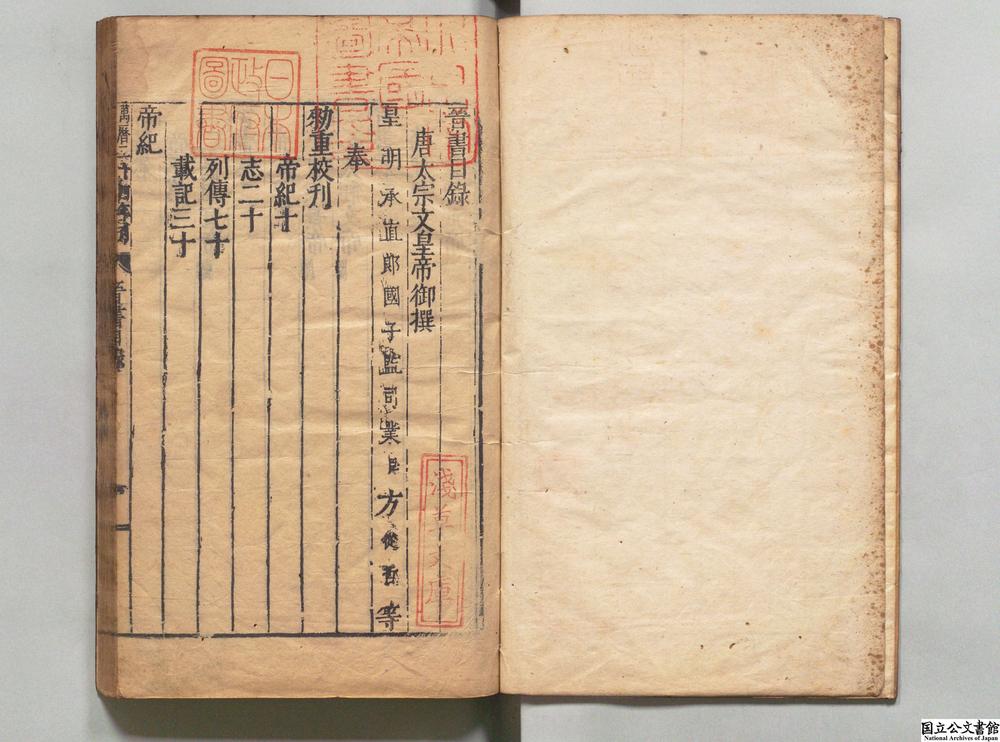 晉書目錄
唐太宗文皇帝御撰
皇明承直郎國子監司業臣方從哲等
奉
勑重校刊
帝紀十
志二十
列傳七十
載記三十
帝紀
萬曆二十四年刊
晉書目錄
日本政府圖書
淺草文庫
国立公文書館
National Archives of Japan